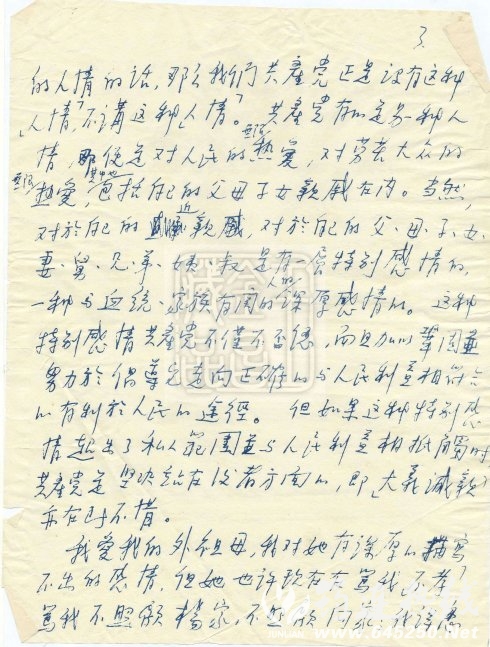 3.
的人情的话,那么我们共產党正是没有这种
「人情」,不講这种「人情」。共產党有的是另一种人
情,那便是对人民的无限热爱,对劳苦大众的
无限热爱,其中也包括自己的父母子女親戚在内。当然,
对於自己的近親,对於自己的父、母、子、女、
妻、舅、兄、弟、姨、叔是有一层特别感情的,
一种与血统、家族有関的人的深厚感情的。这种
特别感情共產党不僅不否認,而且加以鞏固並
努力於倡導它走向正确的与人民利益相符合
的有利於人民的途徑。但如果这种特别感
情超出了私人范圍並与人民利益相抵觸时
共產党是坚决站在后者方面的,即「大義滅親」
亦在所不惜。
我爱我的外祖母,我对她有深厚的描寫
不出的感情,但她也许现在在罵我「不孝」
罵我不照顧楊家,不照顧向家,我得
www.645280.Net